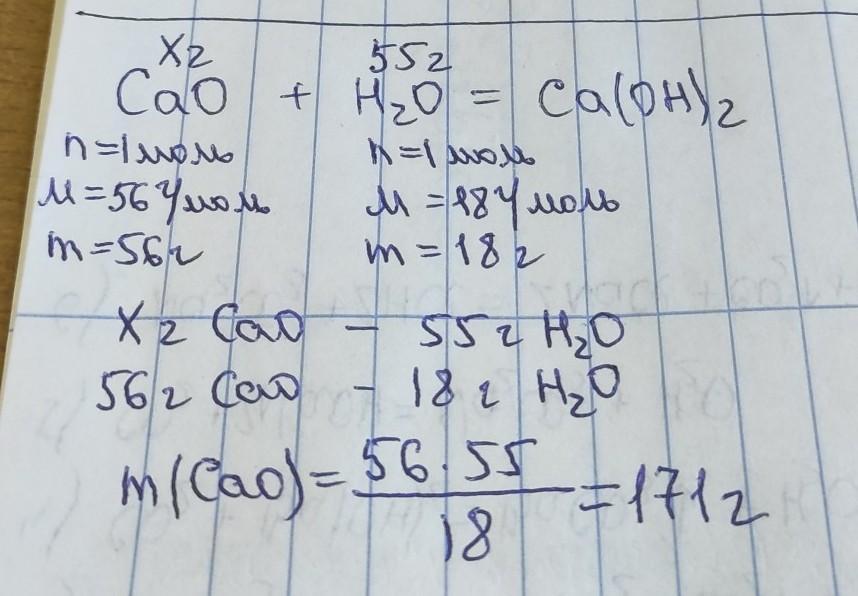 xг 55г
CaO + H₂O = Ca(OH)₂
n=1моль n=1моль
M=56г/моль M=18г/моль
m=56г m=18г
Xг CaO – 55г H₂O
56г CaO – 18г H₂O
m(CaO)= 56·55 / 18 =171г